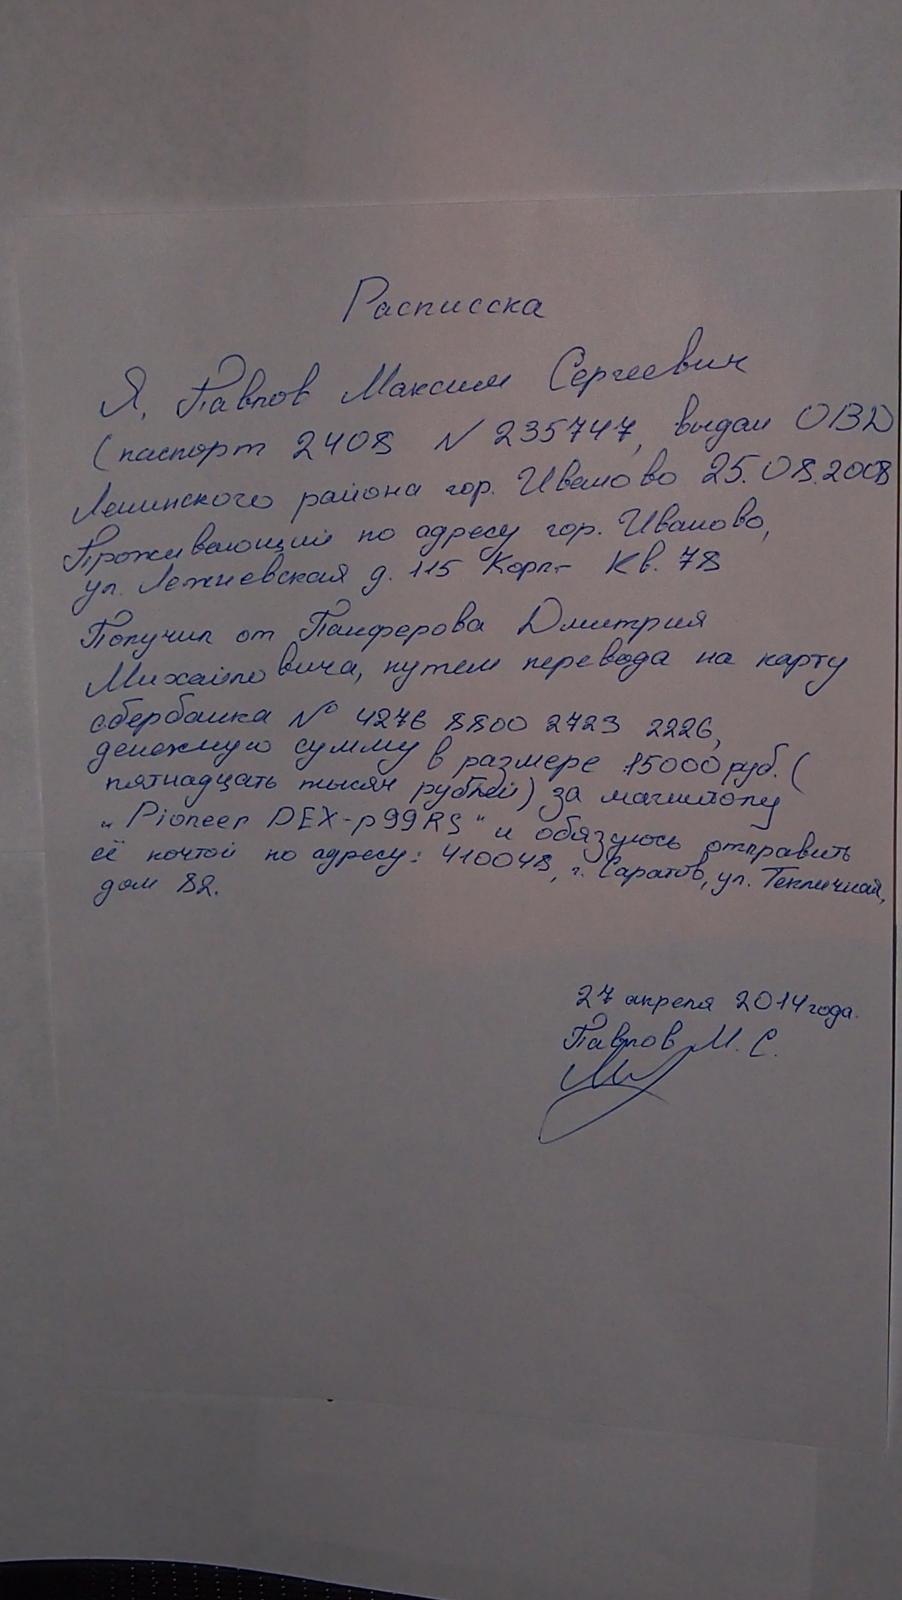 Расписска
Я, Павлов Максим Сергеевич
(паспорт 2408 N 235747, выдан ОВД
Ленинского района гор. Иваново 25.08.2008
Проживающий по адресу гор. Иваново,
ул. Лежневская д. 115 Корп- Кв. 78
Получил от Панферова Дмитрия
Михайловича, путем перевода на карту
сбербанка № 4276 8800 2723 2226,
денежную сумму в размере 15000 руб. (
пятнадцать тысяч рублей) за магнитолу
„Pioneer DEX-p99RS" и обязуюсь отправить
её почтой по адресу: 410048, г. Саратов, ул.
дом 82.
27 апреля 2014 года.
Павлов М. С.